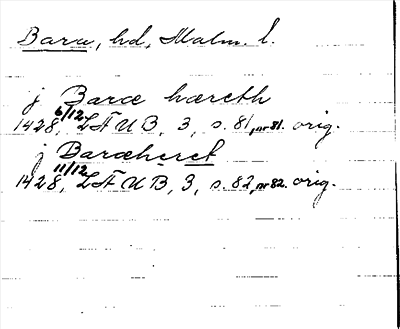 Bara, hd, Malm. l.
j Baræ hæreth
1428 6/12, LÄUB, 3, s. 81, nr 81. orig.
j Baræheret
1428 11/12, LÄUB, 3, s. 82, nr 82. orig.